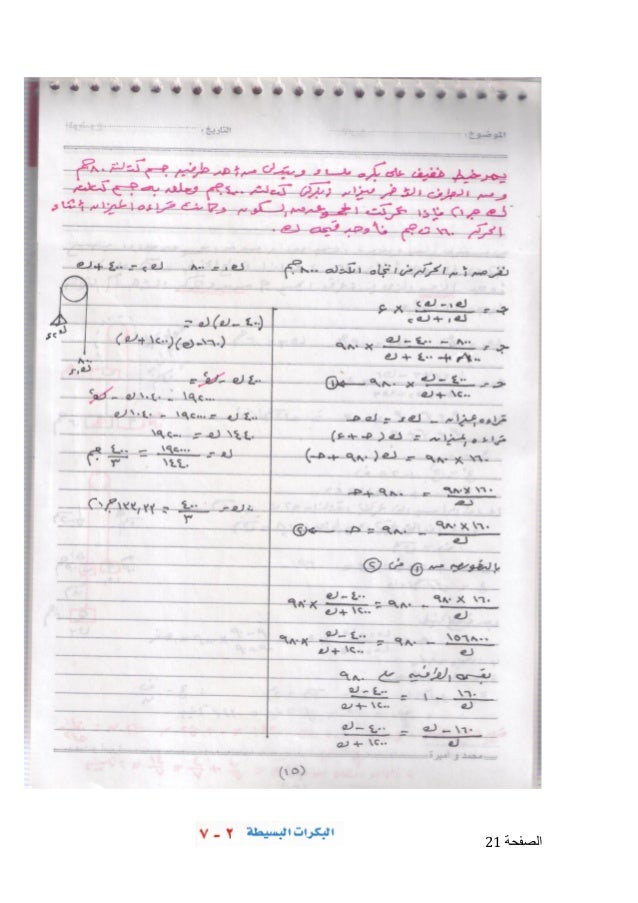 الموضوع:
التاريخ:
يمر خيط خفيف على بكرة ملساء ويتدلى من أحد طرفيه جسم كتلته ٨٠٠ جم
ومن الطرف الآخر ميزان زنبركى كتلته ٤٠٠ جم ومعلق به جسم كتلته
ك جرام فإذا تحركت المجموعة من السكون وكانت قراءة الميزان أثناء
الحركة ١٦٠ ث جم فأوجد قيمة ك.
نفرض أن الحركة فى اتجاه الكتلة ٨٠٠ جم ك١ = ٨٠٠ ك٢ = ٤٠٠ + ك
جـ = (ك١ - ك٢)/(ك١ + ك٢) × ء
جـ = (٨٠٠ - ٤٠٠ - ك)/(٨٠٠ + ٤٠٠ + ك) × ٩٨٠
جـ = (٤٠٠ - ك)/(١٢٠٠ + ك) × ٩٨٠ ← ①
قراءة الميزان - ك ء = ك جـ
قراءة الميزان = ك (جـ + ء)
١٦٠ × ٩٨٠ = ك (٩٨٠ + جـ)
(١٦٠ × ٩٨٠)/ك = ٩٨٠ + جـ
(١٦٠ × ٩٨٠)/ك - ٩٨٠ = جـ ← ②
بالتعويض من ① فى ②
(١٦٠ × ٩٨٠)/ك - ٩٨٠ = (٤٠٠ - ك)/(١٢٠٠ + ك) × ٩٨٠
١٥٦٨٠٠/ك - ٩٨٠ = (٤٠٠ - ك)/(١٢٠٠ + ك) × ٩٨٠
بقسمة الطرفين على ٩٨٠
١٦٠/ك - ١ = (٤٠٠ - ك)/(١٢٠٠ + ك)
(١٦٠ - ك)/ك = (٤٠٠ - ك)/(١٢٠٠ + ك)
(٤٠٠ - ك) ك =
(١٦٠ - ك)(١٢٠٠ + ك)
٤٠٠ ك - ك² =
١٩٢٠٠٠ - ١٠٤٠ ك - ك²
٤٠٠ ك = ١٩٢٠٠٠ - ١٠٤٠ ك
١٤٤٠ ك = ١٩٢٠٠٠
ك = ١٩٢٠٠٠/١٤٤٠ = ٤٠٠/٣ جم
∴ ك = ٤٠٠/٣ = ١٣٣,٣٣ جرام
ك٢ ء
٨٠٠
ك١ ء
محمد و أميرة
(١٥)
٢ - ٧ البكرات البسيطة
الصفحة 21